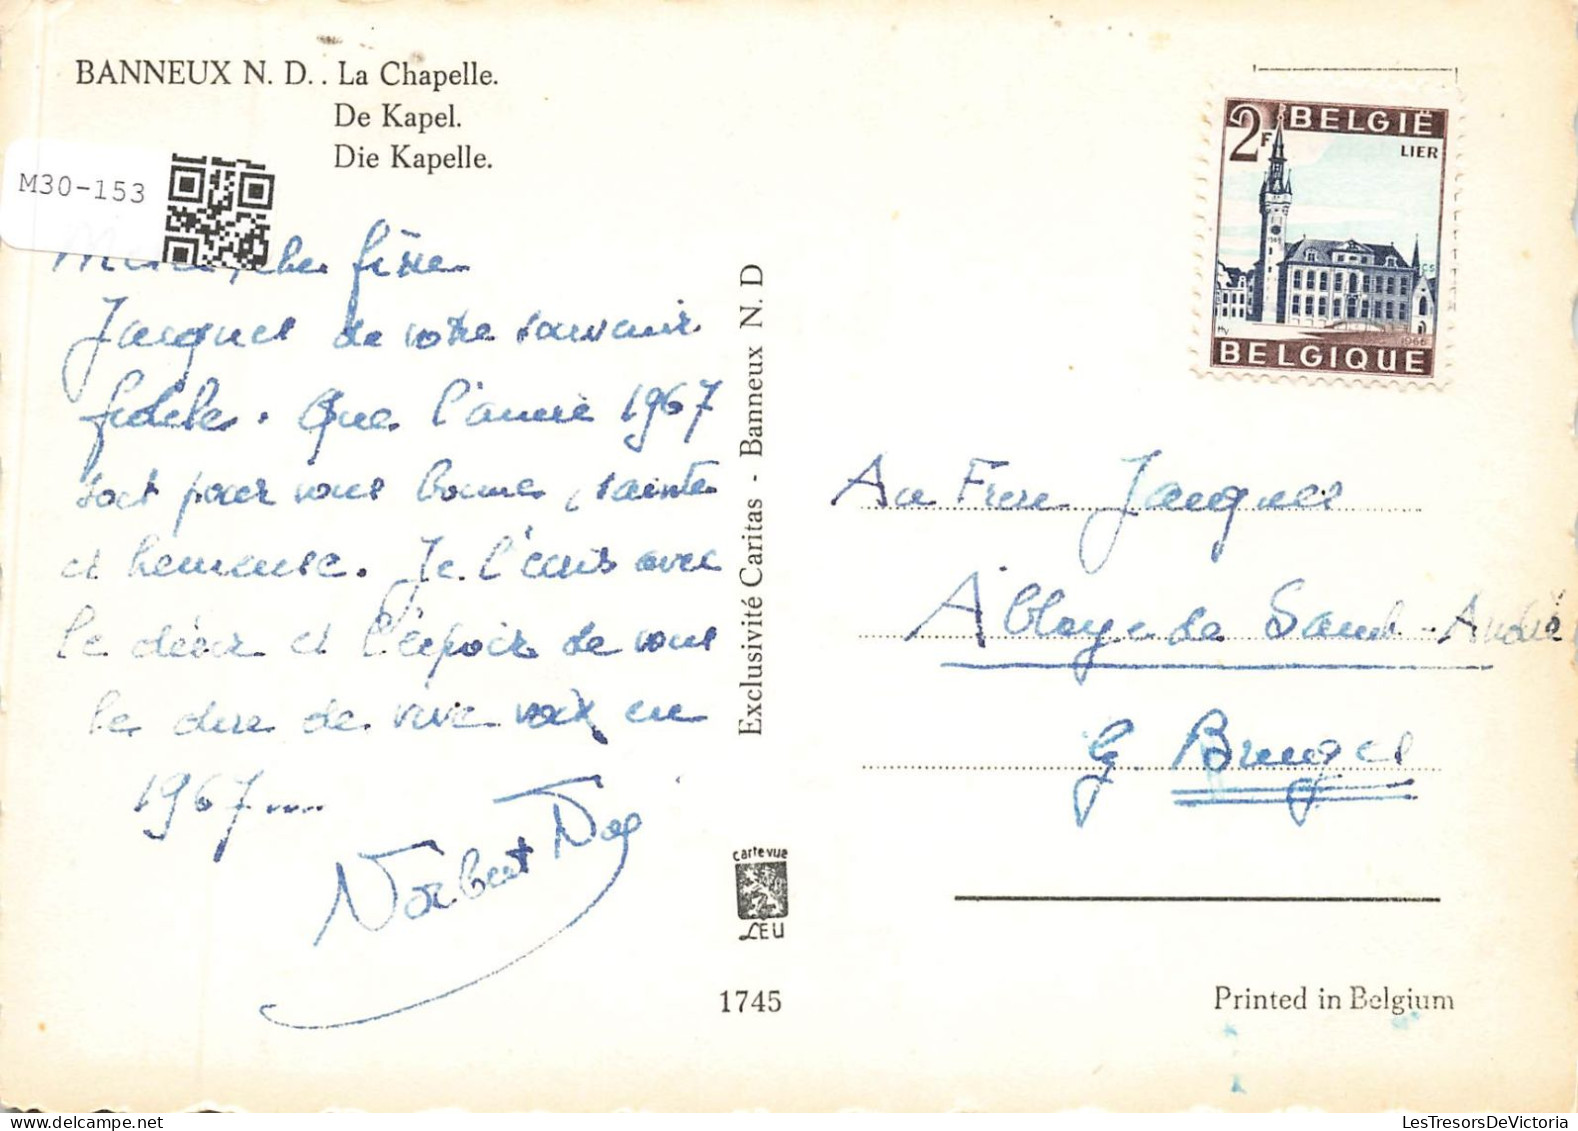 BANNEUX N. D. . La Chapelle.
De Kapel.
Die Kapelle.
M30-153
cher frère
Jacques de votre souvenir
fidèle. Que l'année 1967
soit pour vous bonne, sainte
et heureuse. Je l'écris avec
le désir et l'espoir de vous
le dire de vive voix en
1967....
Norbert
Exclusivité Caritas - Banneux N. D
carte vue
LEU
1745
2F BELGIË
LIER
HV
1966
BELGIQUE
Au Frère Jacques
Abbaye de Saint-André
Bruges
Printed in Belgium
LesTresorsDeVictoria.com